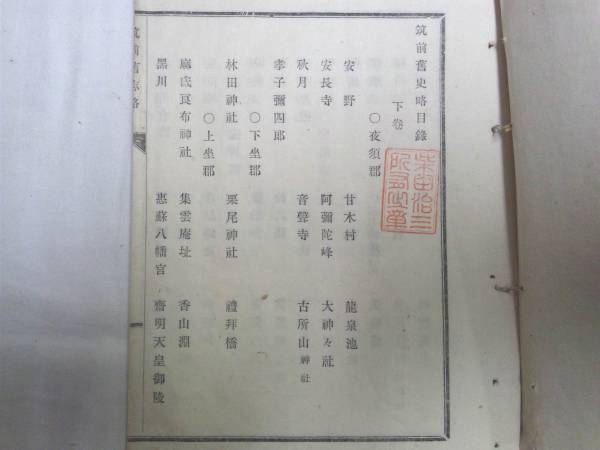 筑前舊史略目錄
下卷
〇夜須郡
安野 甘木村 龍泉池
安長寺 阿彌陀峰 大神々社
秋月 音聲寺 古所山神社
孝子彌四郎
〇下坐郡
林田神社 栗尾神社 禮拜橋
〇上坐郡
麻氐良布神社 集雲庵址 香山淵
黑川 惠蘇八幡宮 齋明天皇御陵
筑前舊志略
柴田治三
所